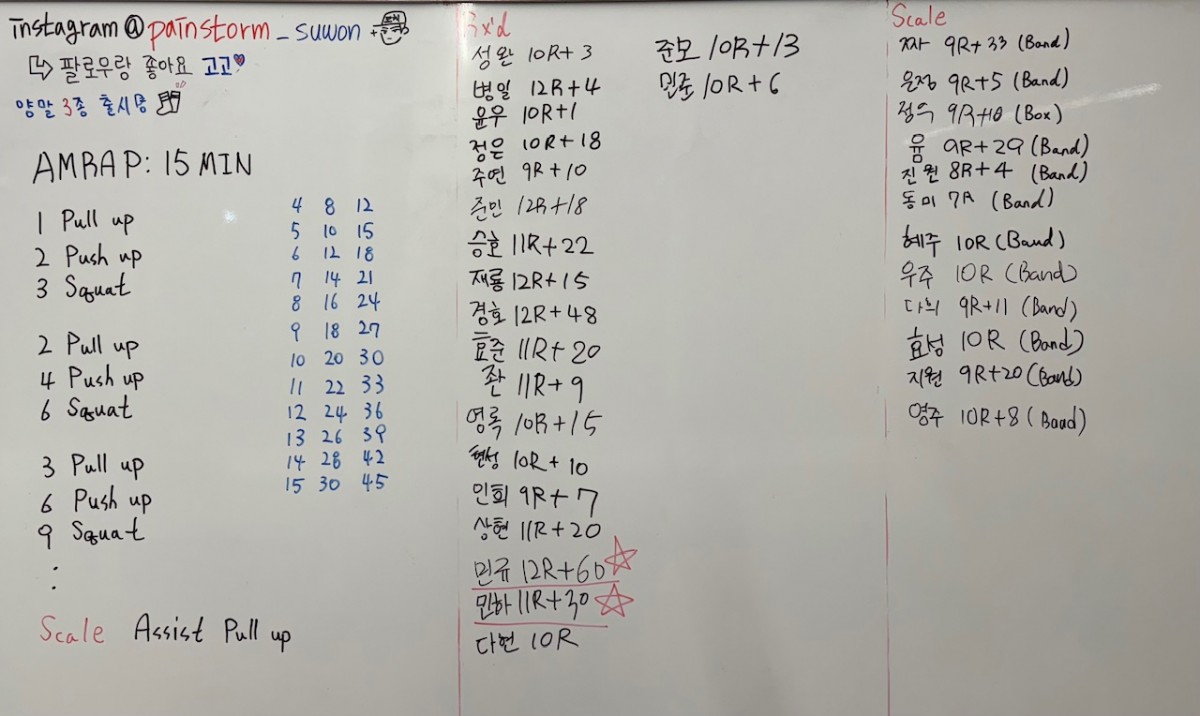 instagram@painstorm_suwon
팔로우랑 좋아요 고고
양말 3종 출시중
AMRAP: 15 MIN
1 Pull up
2 Push up
3 Squat
2 Pull up
4 Push up
6 Squat
3 Pull up
6 Push up
9 Squat
:
Scale Assist Pull up
4 8 12
5 10 15
6 12 18
7 14 21
8 16 24
9 18 27
10 20 30
11 22 33
12 24 36
13 26 39
14 28 42
15 30 45
Rx'd
성완 10R+3
병일 12R+4
윤우 10R+1
정은 10R+18
주연 9R+10
준민 12R+18
승호 11R+22
재룡 12R+15
경호 12R+48
효준 11R+20
좐 11R+9
영록 10R+15
현성 10R+10
인회 9R+7
상현 11R+20
민규 12R+60
민하 11R+30
다현 10R
준모 10R+13
민준 10R+6
Scale
9R+33 (Band)
은정 9R+5 (Band)
정우 9R+10 (Box)
윰 9R+29 (Band)
진원 8R+4 (Band)
동미 7R (Band)
혜주 10R (Band)
우주 10R (Band)
다희 9R+11 (Band)
효성 10R (Band)
지원 9R+20 (Band)
영주 10R+8 (Band)